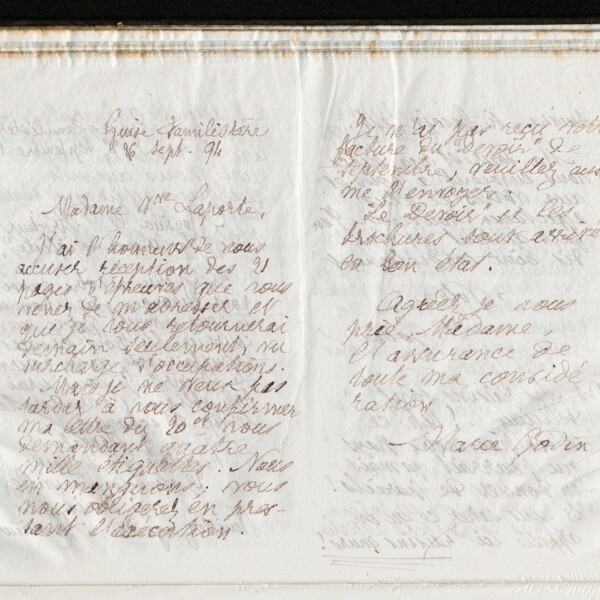 Guise Familistère
26 sept. 94
Madame Vve Laporte,
J'ai l'honneur de vous
accuser réception des 21
pages d'épreuves que vous
venez de m'adresser et
que je vous retournerai
demain seulement, vu
surcharge d'occupations.
Mais je ne veux pas
tarder à vous confirmer
ma lettre du 20 ct vous
demandant quatre
mille étiquettes. Nous
en manquons; vous
nous obligerez en pres-
sant l'exécution.
Je n'ai pas reçu votre
facture du "Devoir" de
septembre, veuillez
me l'envoyer.
"Le Devoir" et les
brochures sont arrivés
en bon état.
Agréez je vous
prie, Madame,
l'assurance de
toute ma considé
ration
Marie Godin